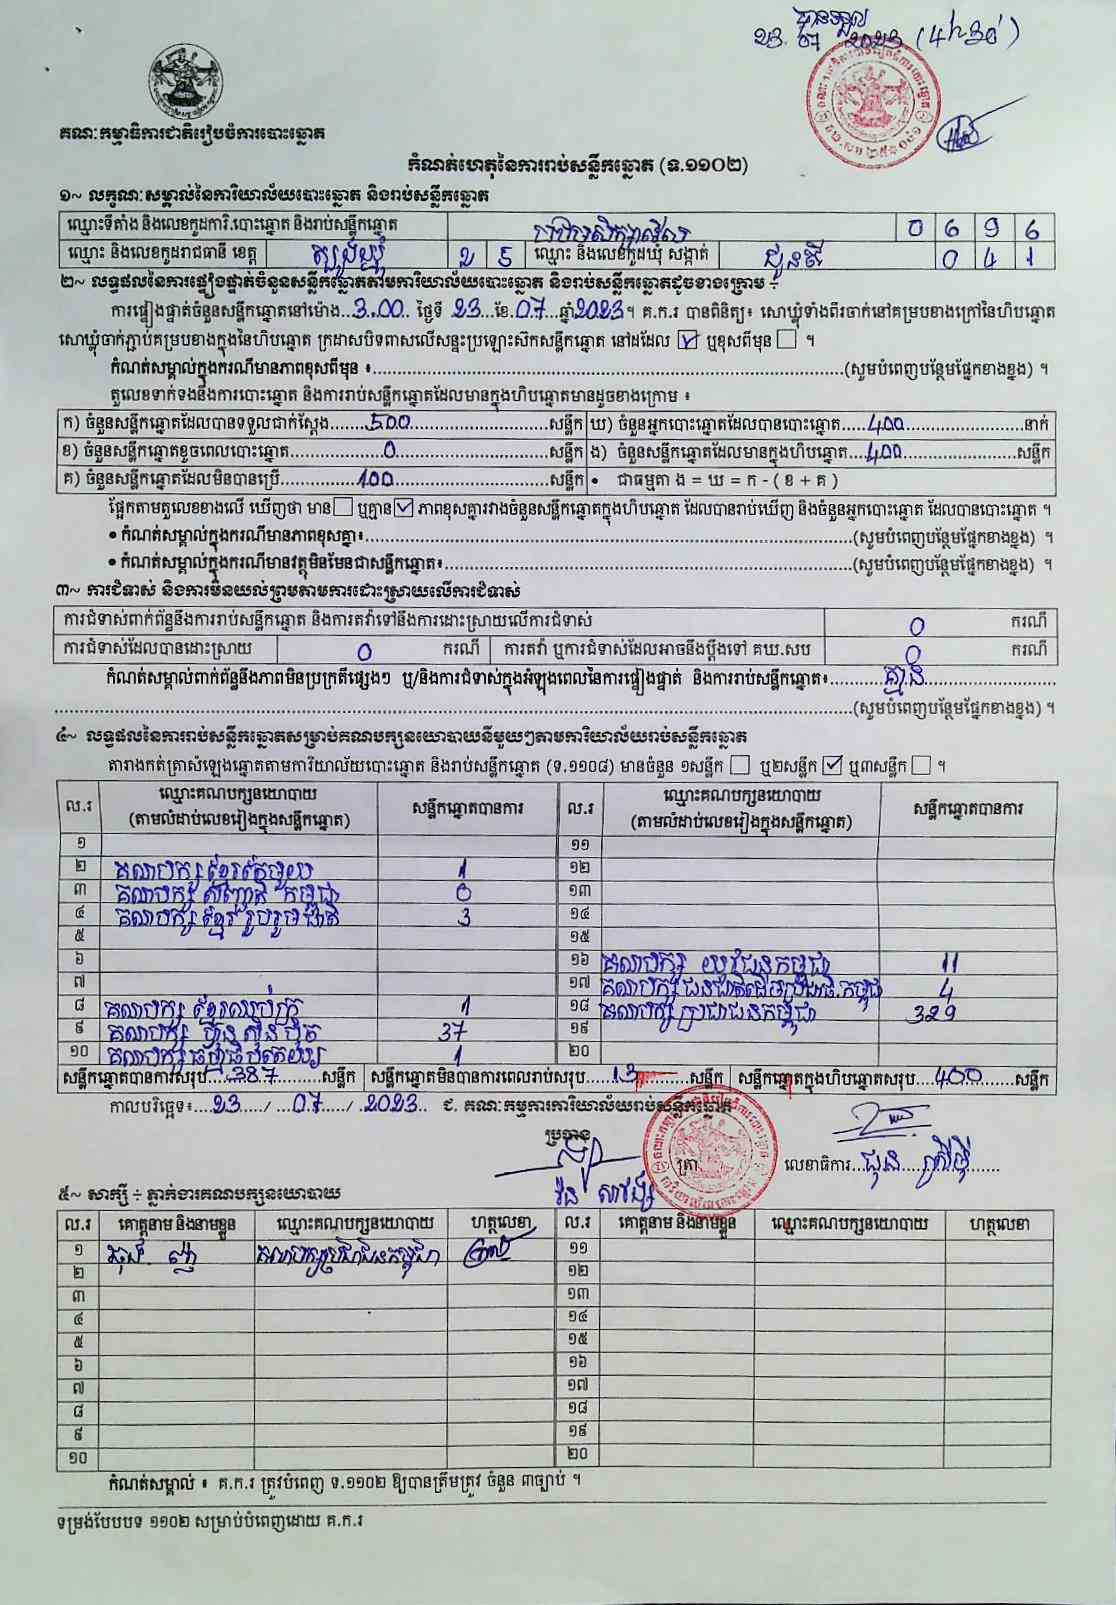 បានទទួល
23. 07 2023 (4h30)
គណៈកម្មាធិការជាតិរៀបចំការបោះឆ្នោត
កំណត់ហេតុនៃការរាប់សន្លឹកឆ្នោត (ទ.១១០២)
១~ លក្ខណៈសម្គាល់នៃការិយាល័យបោះឆ្នោត និងរាប់សន្លឹកឆ្នោត
ឈ្មោះទីតាំង និងលេខកូដការិ.បោះឆ្នោត និងរាប់សន្លឹកឆ្នោត 0 6 9 6
ឈ្មោះ និងលេខកូដរាជធានី ខេត្ត ត្បូងឃ្មុំ 2 5 ឈ្មោះ និងលេខកូដឃុំ សង្កាត់ ជូនតី 0 4 1
២~ លទ្ធផលនៃការផ្ទៀងផ្ទាត់ចំនួនសន្លឹកឆ្នោតតាមការិយាល័យបោះឆ្នោត និងរាប់សន្លឹកឆ្នោតដូចខាងក្រោម ÷
ការផ្ទៀងផ្ទាត់ចំនួនសន្លឹកឆ្នោតនៅម៉ោង...3.00.. ថ្ងៃទី 23...ខែ.07...ឆ្នាំ2023។ គ.ក.រ បានពិនិត្យ៖ សោឃ្លុំទាំងពីរចាក់នៅគម្របខាងក្រៅនៃហិបឆ្នោត
សោឃ្លុំចាក់ភ្ជាប់គម្របខាងក្នុងនៃហិបឆ្នោត ក្រដាសបិទពាសលើសន្ទះប្រឡោះស៊កសន្លឹកឆ្នោត នៅដដែល ☑ ឬខុសពីមុន ☐ ។
កំណត់សម្គាល់ក្នុងករណីមានភាពខុសពីមុន ៖.....(សូមបំពេញបន្ថែមផ្នែកខាងខ្នង) ។
តួលេខទាក់ទងនឹងការបោះឆ្នោត និងការរាប់សន្លឹកឆ្នោតដែលមានក្នុងហិបឆ្នោតមានដូចខាងក្រោម ៖
ក) ចំនួនសន្លឹកឆ្នោតដែលបានទទួលជាក់ស្តែង......500......សន្លឹក ឃ) ចំនួនអ្នកបោះឆ្នោតដែលបានបោះឆ្នោត....400......នាក់
ខ) ចំនួនសន្លឹកឆ្នោតខូចពេលបោះឆ្នោត......0......សន្លឹក ង) ចំនួនសន្លឹកឆ្នោតដែលមានក្នុងហិបឆ្នោត...400......សន្លឹក
គ) ចំនួនសន្លឹកឆ្នោតដែលមិនបានប្រើ......100......សន្លឹក • ជាធម្មតា ង = ឃ = ក - ( ខ + គ )
ផ្អែកតាមតួលេខខាងលើ ឃើញថា មាន ☐ ឬគ្មាន ☑ ភាពខុសគ្នារវាងចំនួនសន្លឹកឆ្នោតក្នុងហិបឆ្នោត ដែលបានរាប់ឃើញ និងចំនួនអ្នកបោះឆ្នោត ដែលបានបោះឆ្នោត ។
• កំណត់សម្គាល់ក្នុងករណីមានភាពខុសគ្នា៖.....(សូមបំពេញបន្ថែមផ្នែកខាងខ្នង) ។
• កំណត់សម្គាល់ក្នុងករណីមានវត្ថុមិនមែនជាសន្លឹកឆ្នោត៖.....(សូមបំពេញបន្ថែមផ្នែកខាងខ្នង) ។
៣~ ការជំទាស់ និងការមិនយល់ព្រមតាមការដោះស្រាយលើការជំទាស់
ការជំទាស់ពាក់ព័ន្ធនឹងការរាប់សន្លឹកឆ្នោត និងការតវ៉ាទៅនឹងការដោះស្រាយលើការជំទាស់ 0 ករណី
ការជំទាស់ដែលបានដោះស្រាយ 0 ករណី ការតវ៉ា ឬការជំទាស់ដែលអាចនឹងប្តឹងទៅ គឃ.សប 0 ករណី
កំណត់សម្គាល់ពាក់ព័ន្ធនឹងភាពមិនប្រក្រតីផ្សេងៗ ឬ/និងការជំទាស់ក្នុងអំឡុងពេលនៃការផ្ទៀងផ្ទាត់ និងការរាប់សន្លឹកឆ្នោត៖......គ្មាន......
.....(សូមបំពេញបន្ថែមផ្នែកខាងខ្នង) ។
៤~ លទ្ធផលនៃការរាប់សន្លឹកឆ្នោតសម្រាប់គណបក្សនយោបាយនីមួយៗតាមការិយាល័យរាប់សន្លឹកឆ្នោត
តារាងកត់ត្រាសំឡេងឆ្នោតតាមការិយាល័យបោះឆ្នោត និងរាប់សន្លឹកឆ្នោត (ទ.១១០៨) មានចំនួន ១សន្លឹក ☐ ឬ២សន្លឹក ☑ ឬ៣សន្លឹក ☐ ។
ល.រ ឈ្មោះគណបក្សនយោបាយ (តាមលំដាប់លេខរៀងក្នុងសន្លឹកឆ្នោត) សន្លឹកឆ្នោតបានការ ល.រ ឈ្មោះគណបក្សនយោបាយ (តាមលំដាប់លេខរៀងក្នុងសន្លឹកឆ្នោត) សន្លឹកឆ្នោតបានការ
១ ១១
២ គណបក្ស ខ្មែរតែមួយ 1 ១២
៣ គណបក្ស សញ្ជាតិ កម្ពុជា 0 ១៣
៤ គណបក្ស ខ្មែរ រួបរួមជាតិ 3 ១៤
៥ ១៥
៦ ១៦ គណបក្ស យុវជនកម្ពុជា 11
៧ ១៧ គណបក្ស ជនជាតិដើមប្រជាធិ.កម្ពុជា 4
៨ គណបក្ស ខ្មែរឈប់ក្រ 1 ១៨ គណបក្ស ប្រជាជនកម្ពុជា 329
៩ គណបក្ស ហ៊្វុនស៊ិនប៉ិច 37 ១៩
១០ គណបក្ស ធម្មាធិបតេយ្យ 1 ២០
សន្លឹកឆ្នោតបានការសរុប...387......សន្លឹក សន្លឹកឆ្នោតមិនបានការពេលរាប់សរុប....13......សន្លឹក សន្លឹកឆ្នោតក្នុងហិបឆ្នោតសរុប...400......សន្លឹក
កាលបរិច្ឆេទ៖....23...../...07...../..2023.. ជ. គណៈកម្មការការិយាល័យរាប់សន្លឹកឆ្នោត
ប្រធាន
ត្រា លេខាធិការ....ជុន
៥~ សាក្សី ÷ ភ្នាក់ងារគណបក្សនយោបាយ
ល.រ គោត្តនាម និងនាមខ្លួន ឈ្មោះគណបក្សនយោបាយ ហត្ថលេខា ល.រ គោត្តនាម និងនាមខ្លួន ឈ្មោះគណបក្សនយោបាយ ហត្ថលេខា
១ គណបក្សប្រជាជនកម្ពុជា ១១
២ ១២
៣ ១៣
៤ ១៤
៥ ១៥
៦ ១៦
៧ ១៧
៨ ១៨
៩ ១៩
១០ ២០
កំណត់សម្គាល់ ៖ គ.ក.រ ត្រូវបំពេញ ទ.១១០២ ឱ្យបានត្រឹមត្រូវ ចំនួន ៣ច្បាប់ ។
ទម្រង់បែបបទ ១១០២ សម្រាប់បំពេញដោយ គ.ក.រ